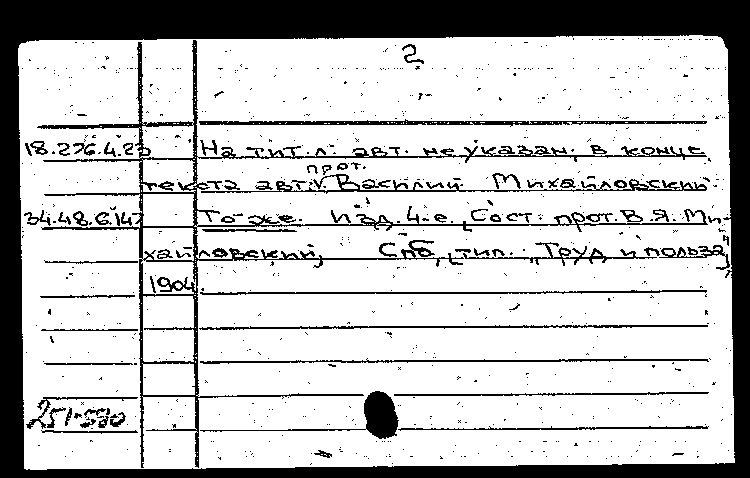 2
18.226.4.23 На тит. л. авт. не указан, в конце
прот.
текста авт.: Василий Михайловский.
34.48.6.147 То-же. Изд. 4-е. Сост. прот. В. Я. Ми-
хайловский, Спб, тип. "Труд и польза",
1904.
251-590